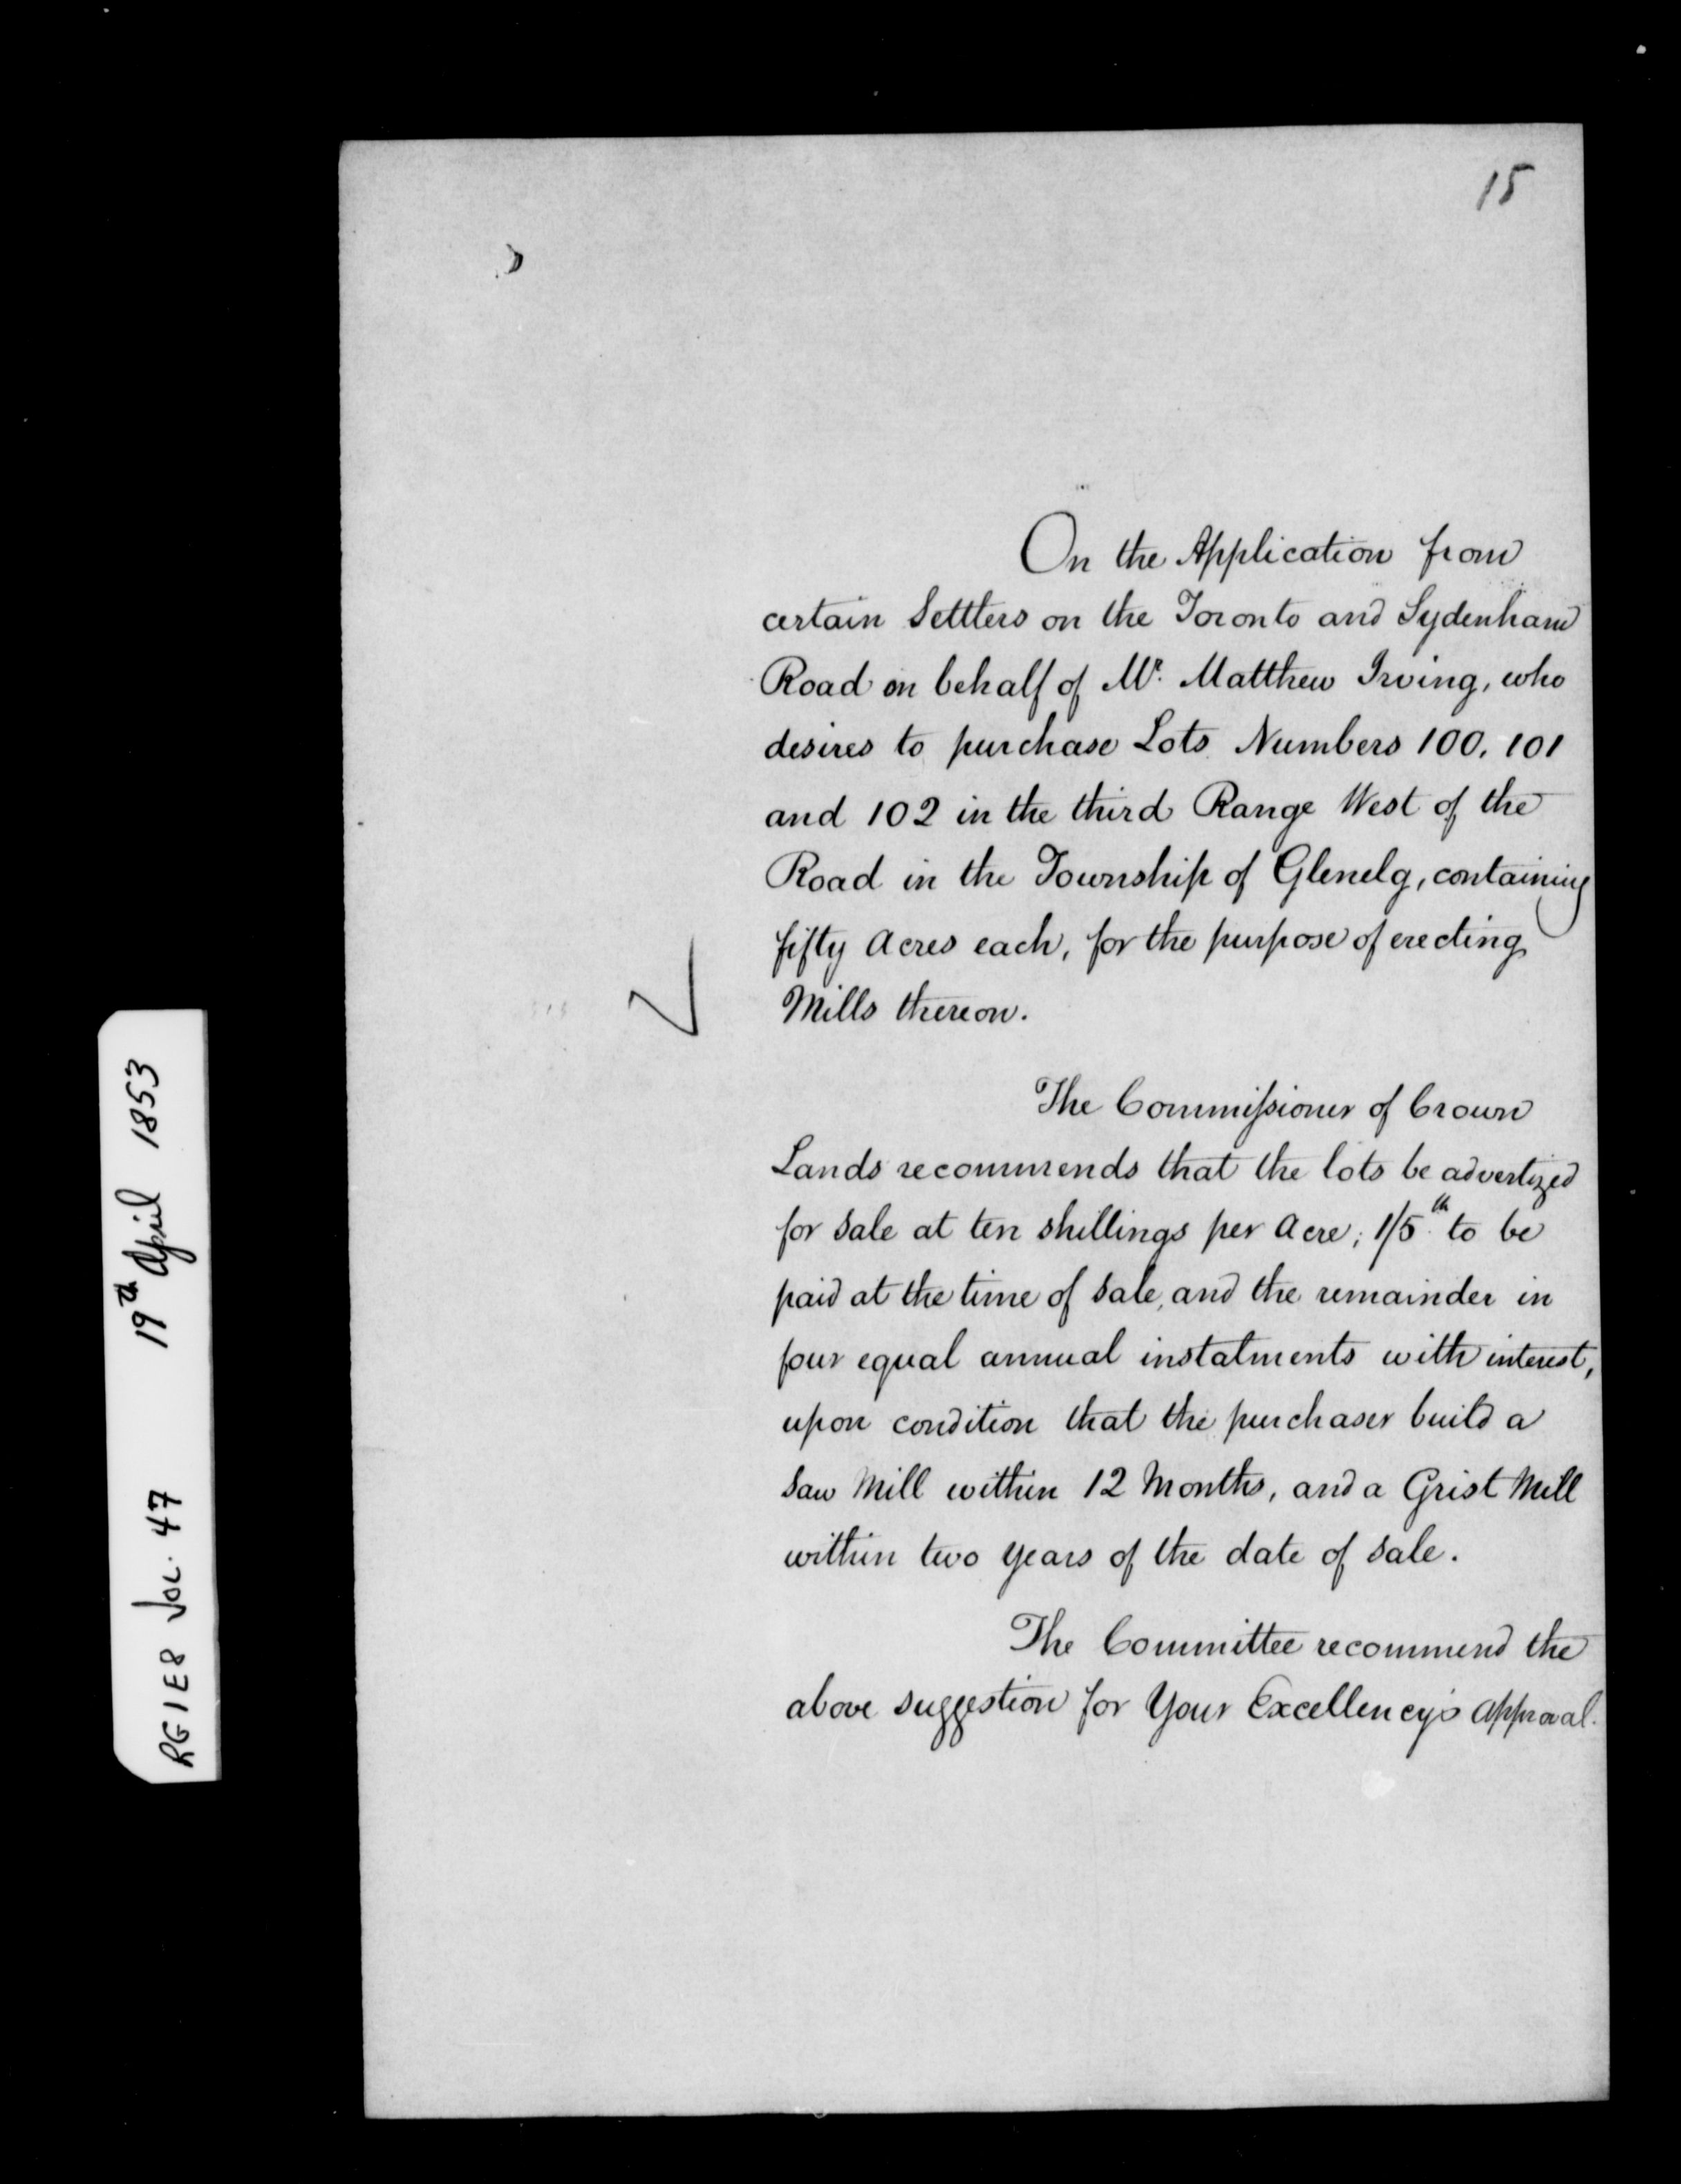 15
On the Application from
certain Settlers on the Toronto and Sydenham
Road on behalf of Mr. Matthew Irving, who
desires to purchase Lots Numbers 100. 101
and 102 in the third Range West of the
Road in the Township of Glenelg, containing
fifty Acres each, for the purpose of erecting
Mills thereon.
The Commissioner of Crown
Lands recommends that the lots be advertized
for sale at ten shillings per Acre; 1/5th to be
paid at the time of sale, and the remainder in
four equal annual instalments with interest,
upon condition that the purchaser build a
Saw Mill within 12 Months, and a Grist Mill
within two years of the date of sale.
The Committee recommend the
above suggestion for Your Excellency's approval.
RG1E8 Vol. 47 19th April 1853